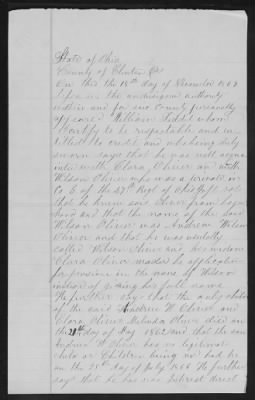 State of Ohio
County of Clinton SS
On this the 18th day of December 1868
before me the undersigned authority
within and for said County personally
appeared William whom
I certify to be respectable and en-
titled to credit and who being duly
sworn says that he was well acqua
inted with Clara Oliver and with
Wilson Oliver who was a private in
Co. E of the 57th Regt of Ohio Inft and
that he knew said Oliver from boy
hood and that the name of the said
Wilson Oliver was Andrew Wilson
Oliver and that he was usually
called Wilson Oliver and his widow
Clara Oliver made the application
for pension in the name of Wilson
instead of giving his full name
He further says that the only child
of the said Andrew W. Oliver and
Clara Oliver Malinda Oliver died on
the day of May 1862 and that the said
Andrew W Oliver has no legitimate
child or Children being nor had he
on the day of July He further
says that he has no interest direct